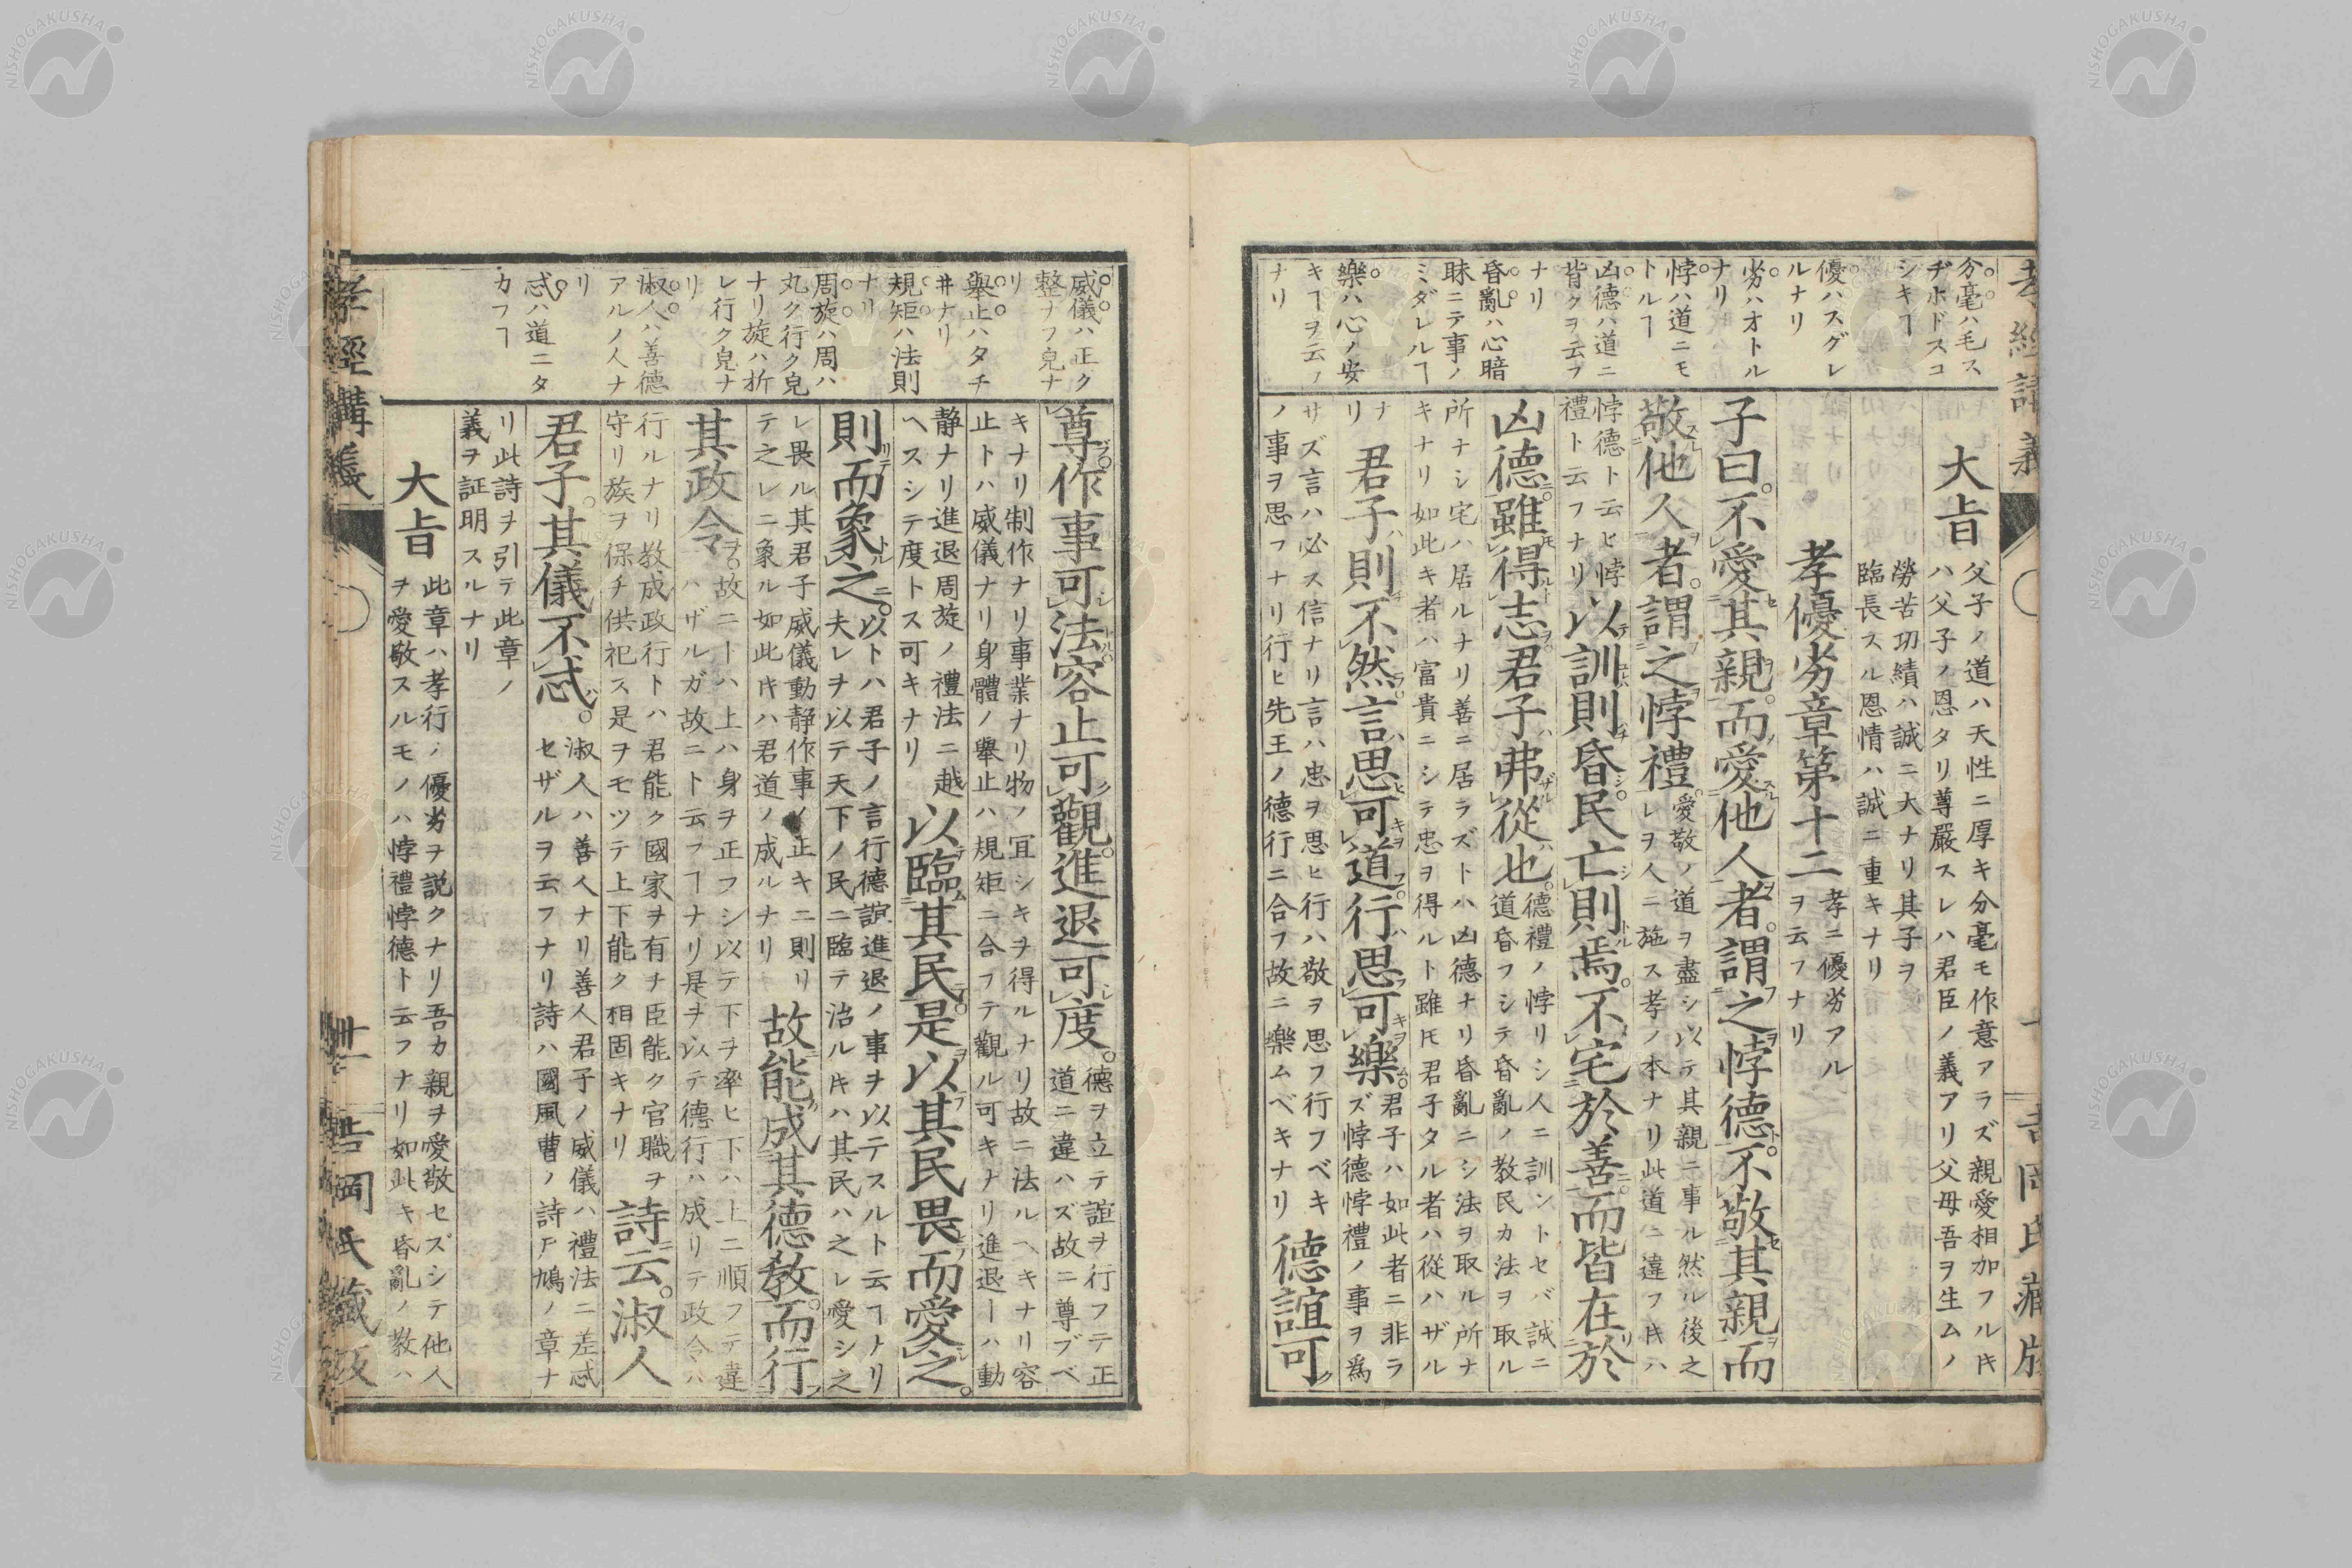 孝經講義
吉岡氏藏版
分毫ハ毛ス
ヂホドスコ
シキヿ
優ハスグレ
ルナリ
劣ハオトル
ナリ
悖ハ道ニモ
トルヿ
凶德ハ道ニ
背クヲ云フ
ナリ
昏亂ハ心暗
昧ニテ事ノ
ミダレルヿ
樂ハ心ノ安
キヿヲ云フ
ナリ
大㫖
父子ノ道ハ天性ニ厚キ分毫モ作意アラズ親愛相加フルキ
ハ父子ノ恩タリ尊嚴スレハ君臣ノ義アリ父母吾ヲ生ムノ
勞苦功績ハ誠ニ大ナリ其子ヲ
臨長スル恩情ハ誠ニ重キナリ
孝優劣章第十二
孝ニ優劣アル
ヲ云フナリ
子曰。不愛其親。而愛他人者。謂之悖德。不敬其親而
敬他人者。謂之悖禮。
愛敬ノ道ヲ盡シ以テ其親ニ事ル然ル後之
レヲ人ニ施ス孝ノ本ナリ此道ニ違フキハ
悖德ト云ヒ悖
禮ト云フナリ
以訓則昏民亡則焉。不宅於善而皆在於
凶德雖得志君子弗從也。
德禮ノ悖リシ人ニ訓ントセバ誠ニ
道昏フシテ昏亂ノ教民カ法ヲ取ル
所ナシ宅ハ居ルナリ善ニ居ラズトハ凶德ナリ昏亂ニシ法ヲ取ル所ナ
キナリ如此キ者ハ富貴ニシテ忠ヲ得ルト雖𪜈君子タル者ハ從ハザル
ナ
リ
君子則不然言思可道行思可樂
君子ハ如此者ニ非ラ
ズ悖德悖禮ノ事ヲ為
サズ言ハ必ス信ナリ言ハ忠ヲ思ヒ行ハ敬ヲ思フ行フベキ
ノ事ヲ思フナリ行ヒ先王ノ德行ニ合フ故ニ樂ムベキナリ
德誼可
威儀ハ正ク
整ナフ皃ナ
リ
舉止ハタチ
井ナリ
規矩ハ法則
ナリ
周旋ハ周ハ
丸ク行ク皃
ナリ旋ハ折
レ行ク皃ナ
リ
淑人ハ善德
アルノ人ナ
リ
忒ハ道ニタ
カフヿ
尊作事可法容止可觀進退可度。
德ヲ立テ誼ヲ行フテ正
道ニ違ハズ故ニ尊ブベ
キナリ制作ナリ事業ナリ物ノ冝シキヲ得ルナリ故ニ法ルヘキナリ容
止トハ威儀ナリ身體ノ舉止ハ規矩ニ合フテ觀ル可キナリ進退ーハ動
静ナリ進退周旋ノ禮法ニ越
ヘスシテ度トス可キナリ
以臨其民是以其民畏而愛之。
則而象之。
以トハ君子ノ言行德誼進退ノ事ヲ以テスルト云ヿナリ
夫レヲ以テ天下ノ民ニ臨テ治ルキハ其民ハ之レ愛シ之
レ畏ル其君子威儀動静作事ノ正キニ則リ
テ之レニ象ル如此キハ君道ノ成ルナリ
故能成其德教。而行
其政令
故ニーハ上ハ身ヲ正フシ以テ下ヲ率ヒ下ハ上ニ順フテ違
ハザルガ故ニト云フヿナリ是ヲ以テ德行ハ成リテ政令ハ
行ルナリ教成政行トハ君能ク國家ヲ有ナ臣能ク官職ヲ
守リ族ヲ保チ供祀ス是ヲモツテ上下能ク相固キナリ
詩云。淑人
君子。其儀不忒。
淑人ハ善人ナリ善人君子ノ威儀ハ禮法ニ差忒
セザルヲ云フナリ詩ハ國風曹ノ詩尸鳩ノ章ナ
リ此詩ヲ引テ此章ノ
義ヲ証明スルナリ
大㫖
此章ハ孝行ノ優劣ヲ説クナリ吾カ親ヲ愛敬セズシテ他人
ヲ愛敬スルモノハ悖禮悖德ト云フナリ如此キ昏亂ノ教ハ
孝經講義
卅一
吉岡氏藏版